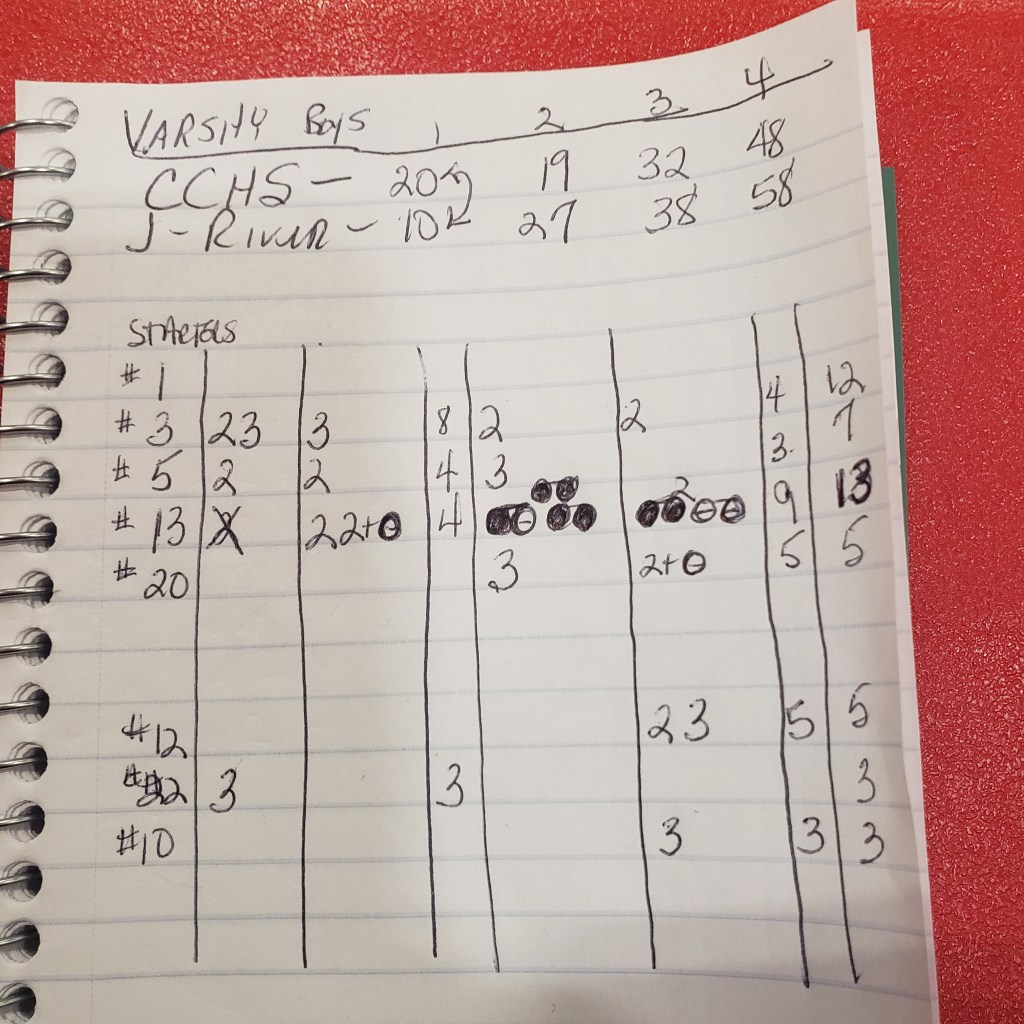 VARSITY BOYS 1 2 3 4
CCHS - 20 19 32 48
J-RIVER - 10 27 38 58
STARTERS
# 1 4 12
# 3 23 3 8 2 2 3 7
# 5 2 2 4 3 9 13
# 13 2 22+ 4 2 5 5
# 20 3 2+
#12 23 5 5
#22 3 3 3
#10 3 3 3